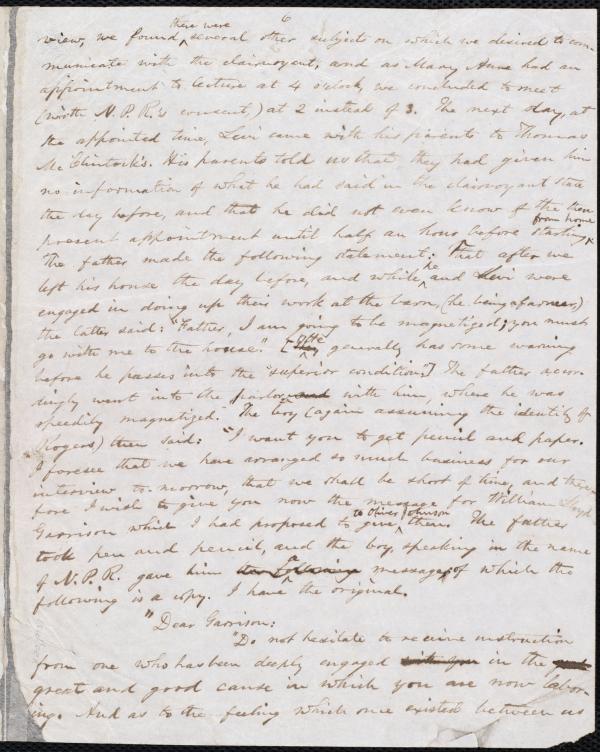 6
view, we found there were several other subjects on which we desired to com-
municate with the clairvoyant, and as Mary Anne had an
appointment to lecture at 4 o'clock, we concluded to meet
(with N. P. R.'s consent,) at 2 instead of 3. The next day, at
the appointed time, Levi came with his parents to Thomas
McClintock's. His parents told us that they had given him
no information of what he had said in the clairvoyant state
the day before, and that he did not even know of the then
present appointment until half an hour before starting from home
The father made the following statement: That after we
left his house the day before, and while he and Levi were
engaged in doing up their work at the barn, (he being a farmer)
the latter said: "Father, I am going to be magnetized; you must
go with me to the house." [ generally has some warning
before he passes into the "superior condition"] The father accor-
dingly went into the parlor with him, where he was
speedily magnetized. The boy (again assuming the identity of
Rogers) then said: "I want you to get pencil and paper.
I foresee that we have arranged so much business for our
interview to-morrow, that we shall be short of time, and there-
fore I wish to give you now the message for William Lloyd
Garrison which I had proposed to give to Oliver Johnson then. The father
took pen and pencil, and the boy, speaking in the name
of N. P. R. gave him a message, of which the
following is a copy. I have the original.
"Dear Garrison:
"Do not hesitate to receive instruction
from one who has been deeply engaged in the
great and good cause in which you are now labor-
ing. And as to the feeling which once existed between us